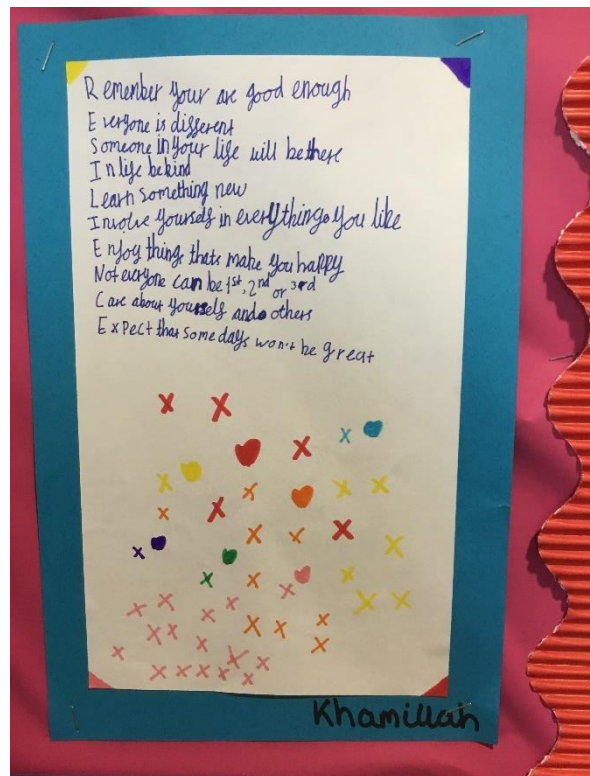 Remember your are good enough
Everyone is different
Someone in your life will be there
In life be kind
Learn something new
Involve yourself in everything you like
Enjoy things thats make you happy
Not everyone can be 1st, 2nd or 3rd
Care about yourself and others
Expect that some days won't be great
Khamillah